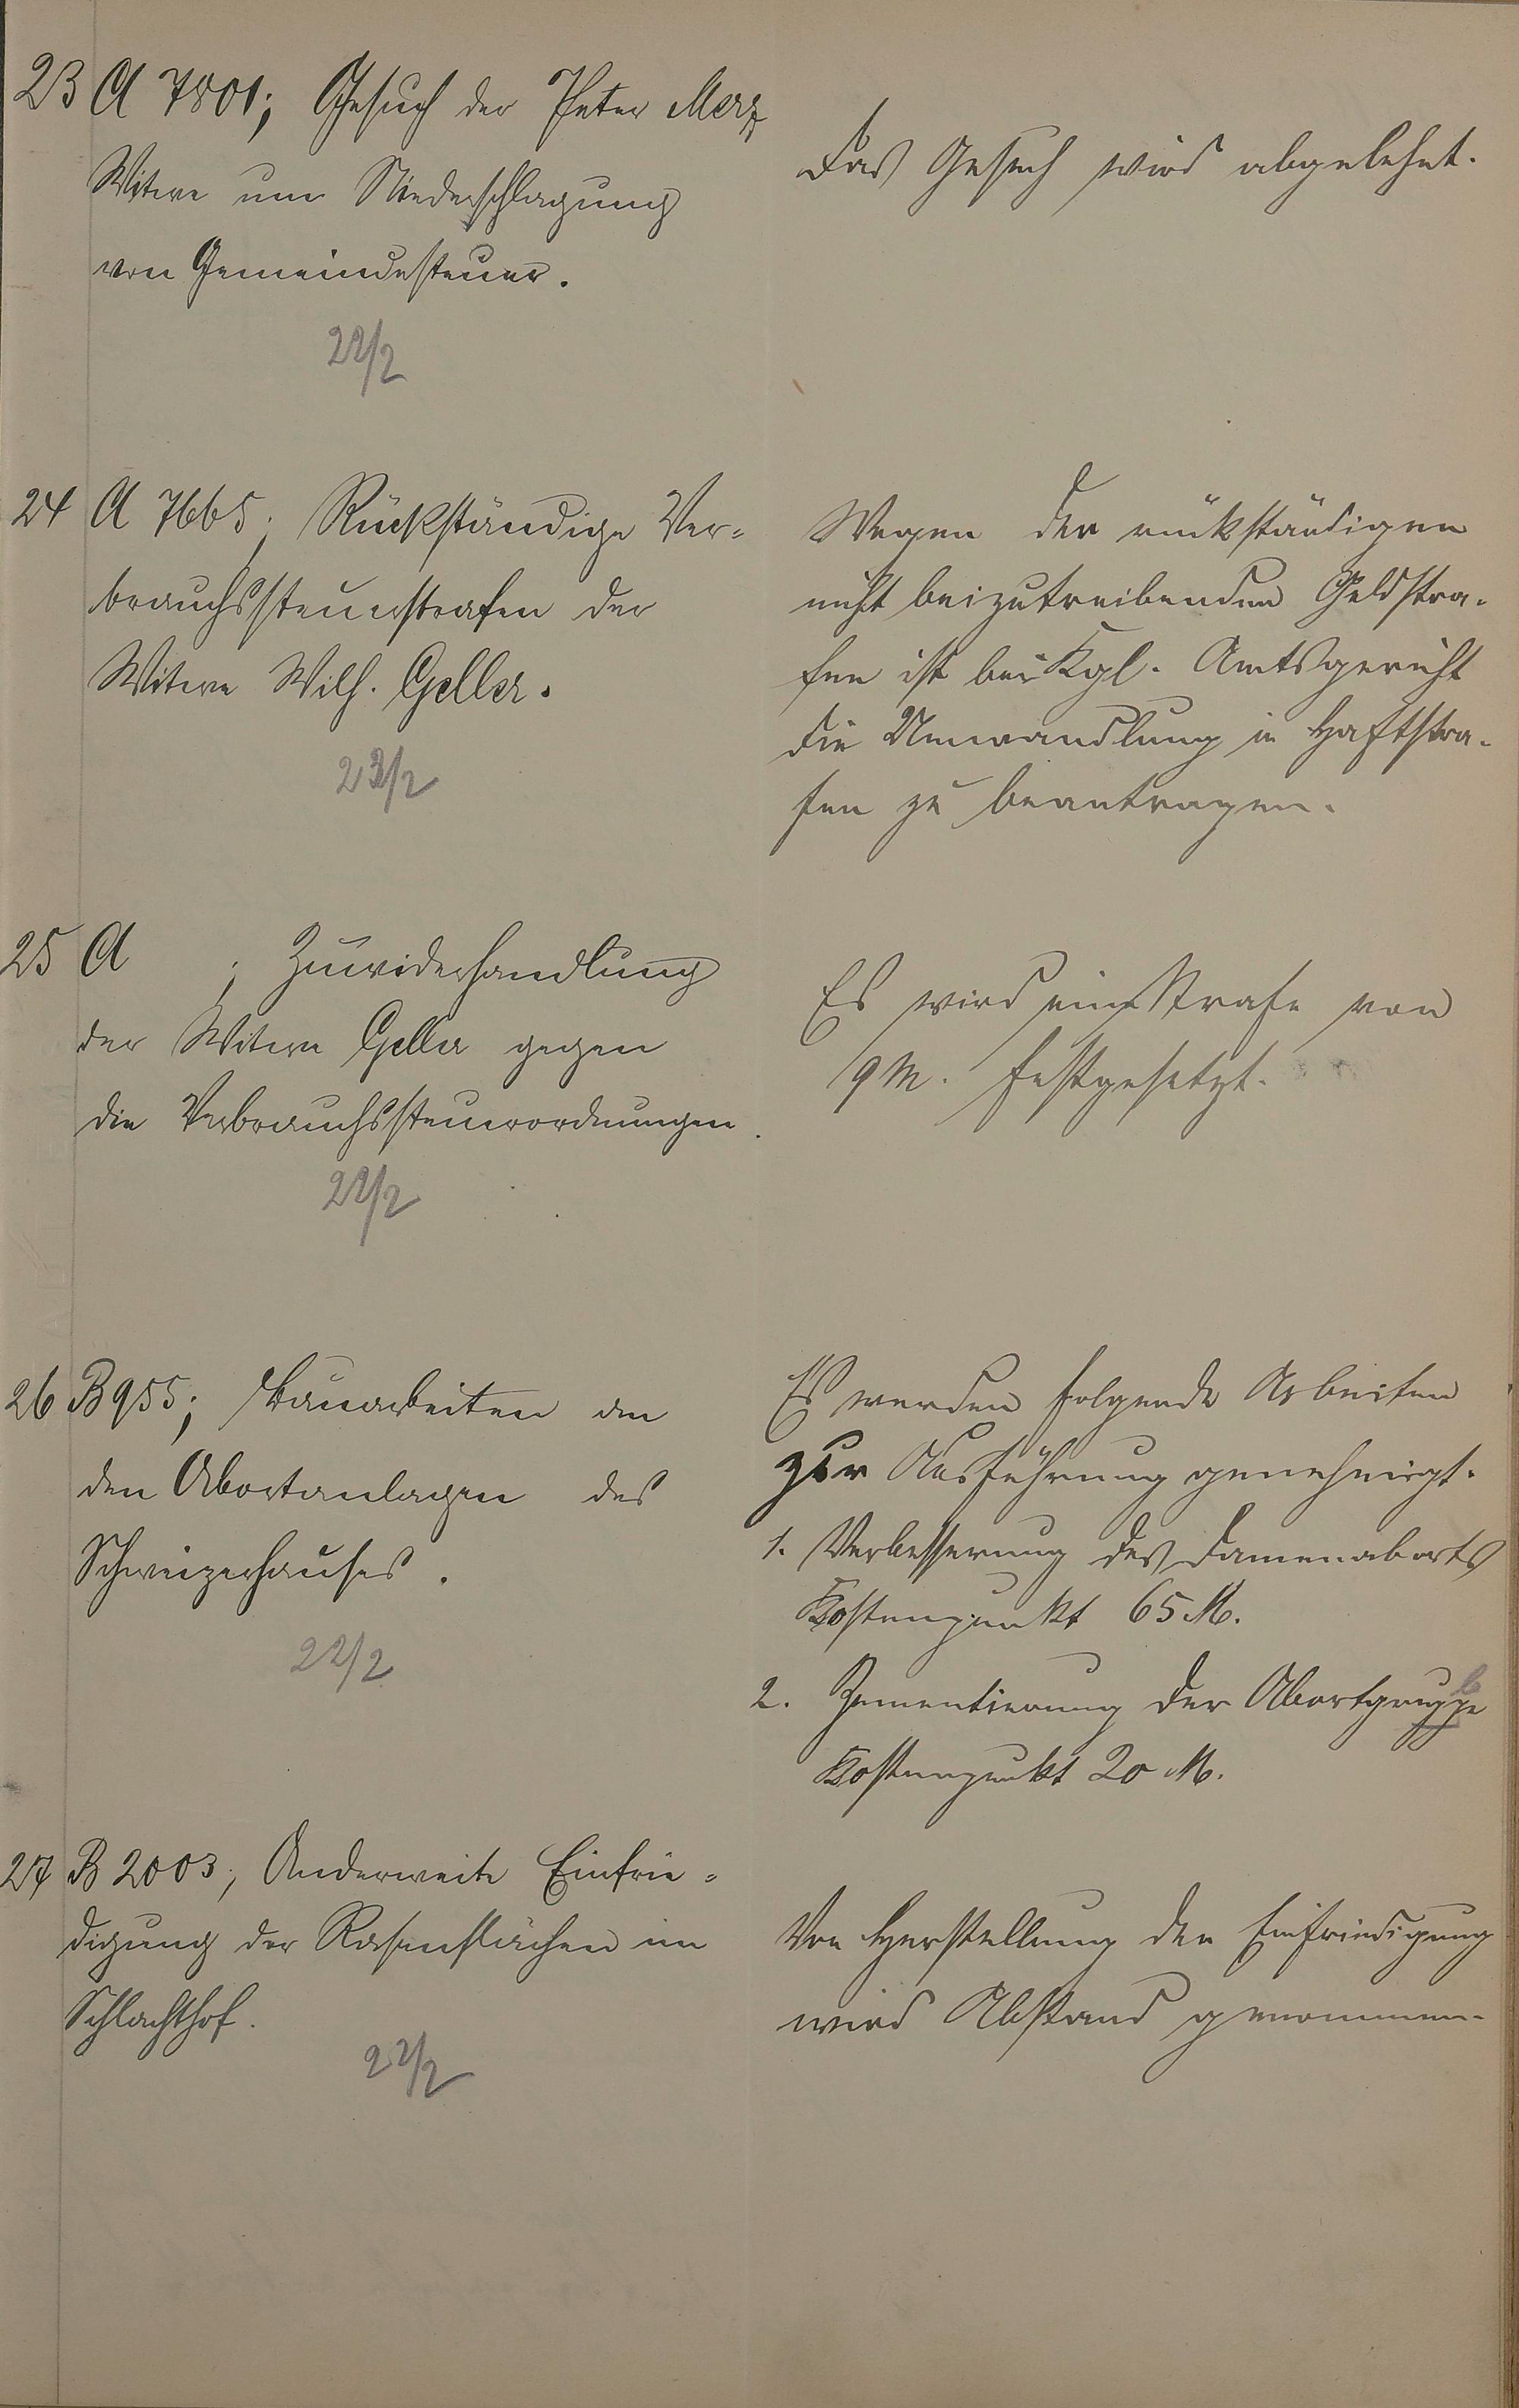 23 A 7801; Gesuch der Peter Merz
Witwe um Niederschlagung
von Gemeindesteuer.
22/2
Das Gesuch wird abgelehnt.
24 A 7665; Rückständige Ver-
brauchssteuerstrafen der
Witwe Wilh. Geller.
22/2
Wegen der rückständigen
nicht beizutreibenden Geldstra-
fen ist bei Kgl. Amtsgericht
die Umwandlung in Haftstra-
fen zu beantragen.
25 A ; Zuwiderhandlung
der Witwe Geller gegen
die Verbrauchssteuerordnungen.
22/2
Es wird eine Strafe von
9 M. festgesetzt.
26 B 955; Bauarbeiten an
den Abortanlagen des
Schweizerhauses.
22/2
Es werden folgende Arbeiten
zur Ausführung genehmigt.
1. Verbesserung des Damenaborts
Kostenpunkt 65 M.
2. Zementierung der Abortgruppe
Kostenpunkt 20 M.
27 B 2003; Anderweite Einfrie-
digung der Rasenflächen im
Schlachthof.
22/2
Von Herstellung der Einfriedigung
wird Abstand genommen.